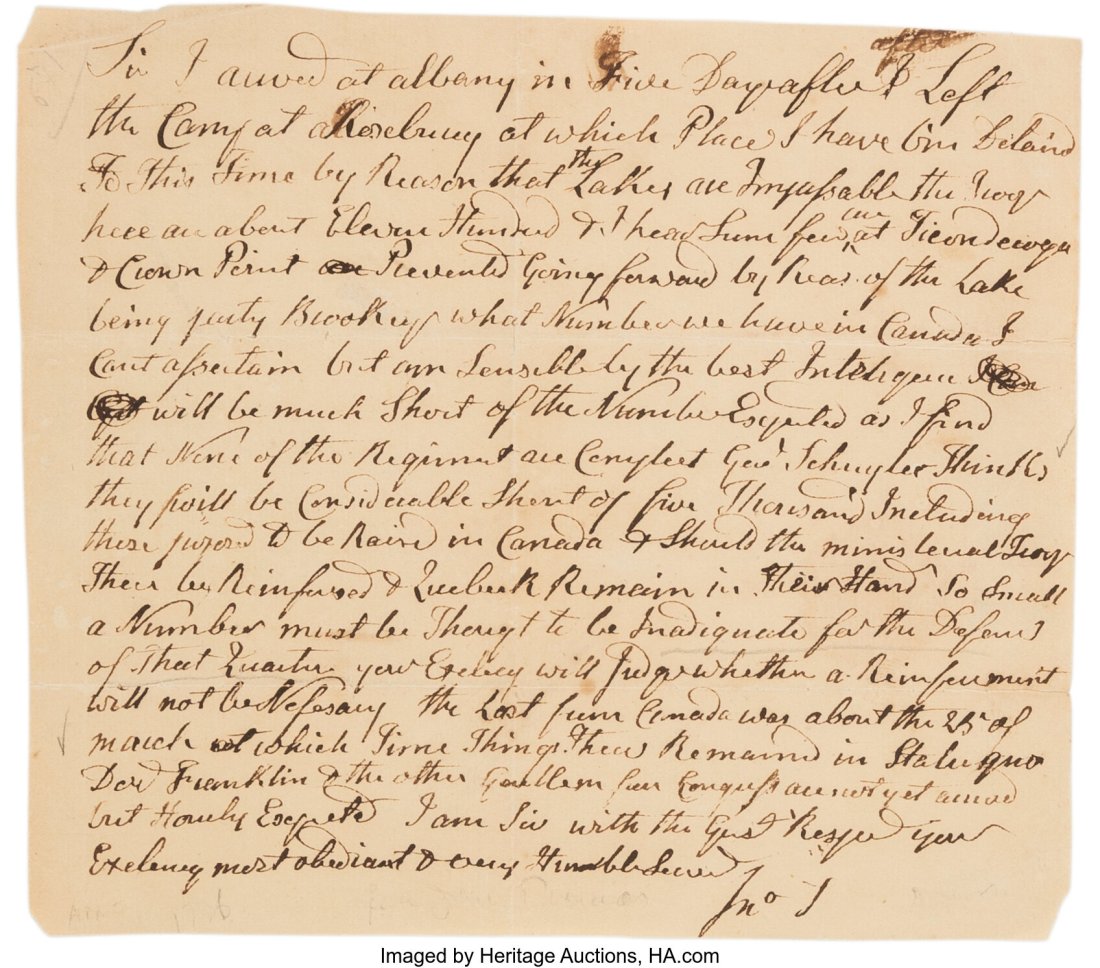 Sir I arived at albany in Five Days after I Left
the Camp at Roxebruey at which Place I have bin Detaind
To This Time by Reason that the Lakes are Impassable the Troops
here are about Eleven Hundred & I hear Sum few are at Ticonderoga
& Crown Point Prevented Going forward by Reas. of the Lake
being partly Brooke up what Number we have in Canada I
Cant assertain but am Sensible by the best Inteligence
will be much Short of the Number Expected as I find
that None of the Regiment are Compleet Genl Schuyler Thinks
they will be Considerable Short of five Thousand Including
those purposed to be Raisd in Canada & Should the ministerial Troops
Their be Reinforsed & Quebeck Remain in Their Hand So Small
a Number must be Thougt to be Inadiquate for the Defens
of That Quarter your Exelency will Judge whether a Reinforcement
will not be Nesesary the Last from Canada was about the 25 of
march at which Time Things Their Remained in Statu quo
Docr Franklin & the other Gentlem from Congress are not yet arived
but Hourly Expected I am Sir with the Gratst Respect your
Exelency most obediant & very Humble Servt
Jno T
Imaged by Heritage Auctions, HA.com